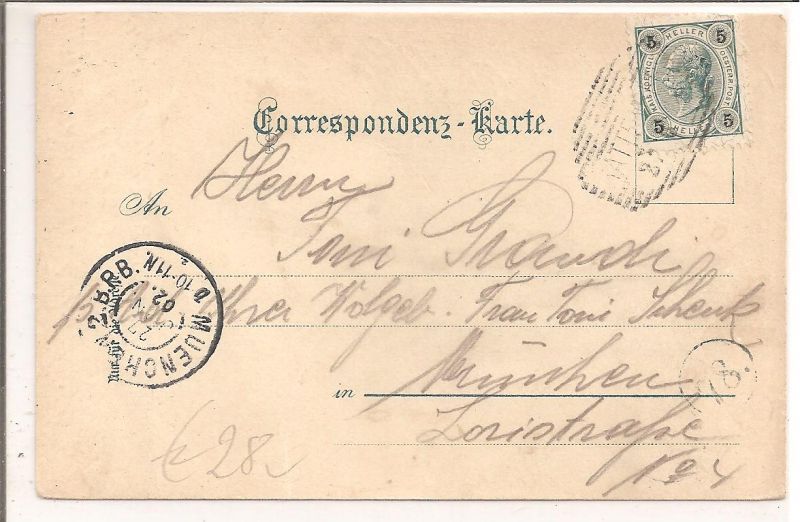 5 HELLER 5
KAIS. KOENIGL. OESTERR. POST
5 HELLER 5
Correspondenz-Karte.
An
Herrn
Toni
Ihrer Wolgeb. Frau Toni Schenk
in München
Loristraße
No 4
MUENCHEN 2 B.P.B.
10-11 N.
02.
18.
€ 28